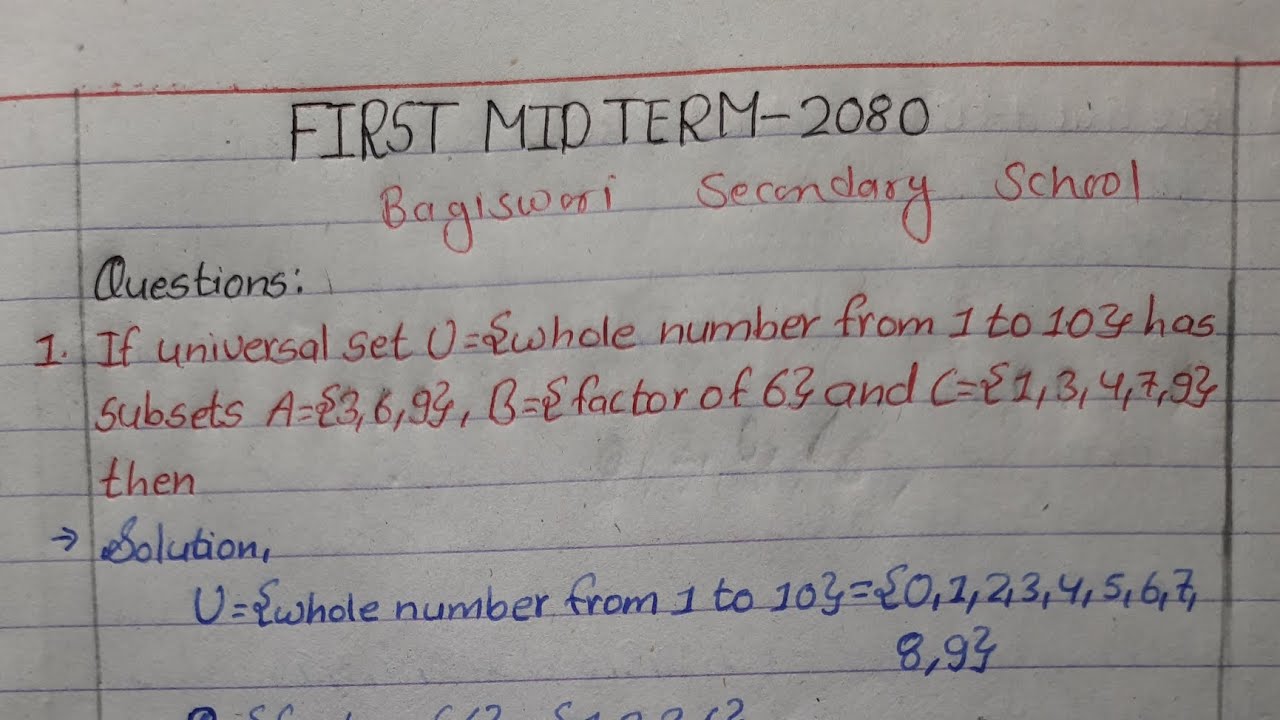 FIRST MID TERM-2080
Bagiswori Secondary School
Questions:
1. If universal set U={whole number from 1 to 10} has
subsets A={3,6,9}, B={factor of 6} and C={1,3,4,7,9}
then
→ Solution,
U={whole number from 1 to 10}={0,1,2,3,4,5,6,7,
8,9}